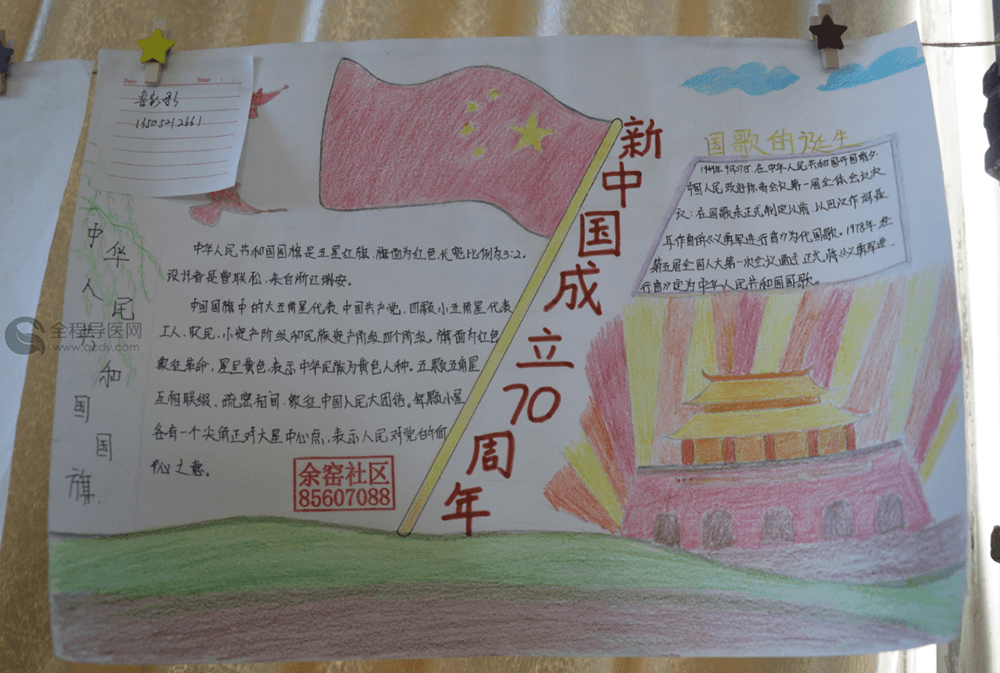 Date: Time:
13505212661
新中国成立70周年
国歌的诞生
1949年9月27日,在中华人民共和国开国前夕.
中国人民政治协商会议第一届全体会议决
议:在国歌未正式制定以前,以田汉作词聂
耳作曲的《义勇军进行曲》为代国歌。1978年在
第五届全国人大第一次会议通过正式将《义勇军进
行曲》定为中华人民共和国国歌。
中华人民共和国国旗
中华人民共和国国旗是五星红旗,旗面为红色长宽比例为3:2。
设计者是曾联松,来自浙江瑞安。
中国国旗中的大五角星代表中国共产党,四颗小五角星代表
工人,农民,小资产阶级和民族资产阶级四个阶级。旗面为红色
象征革命,星呈黄色,表示中华民族为黄色人种。五颗五角星
互相联缀、疏密相间,象征中国人民大团结。每颗小星
各有一个尖角正对大星中心点,表示人民对党的向
心之意。
余窑社区
85607088
全程导医网
www.qcdy.com